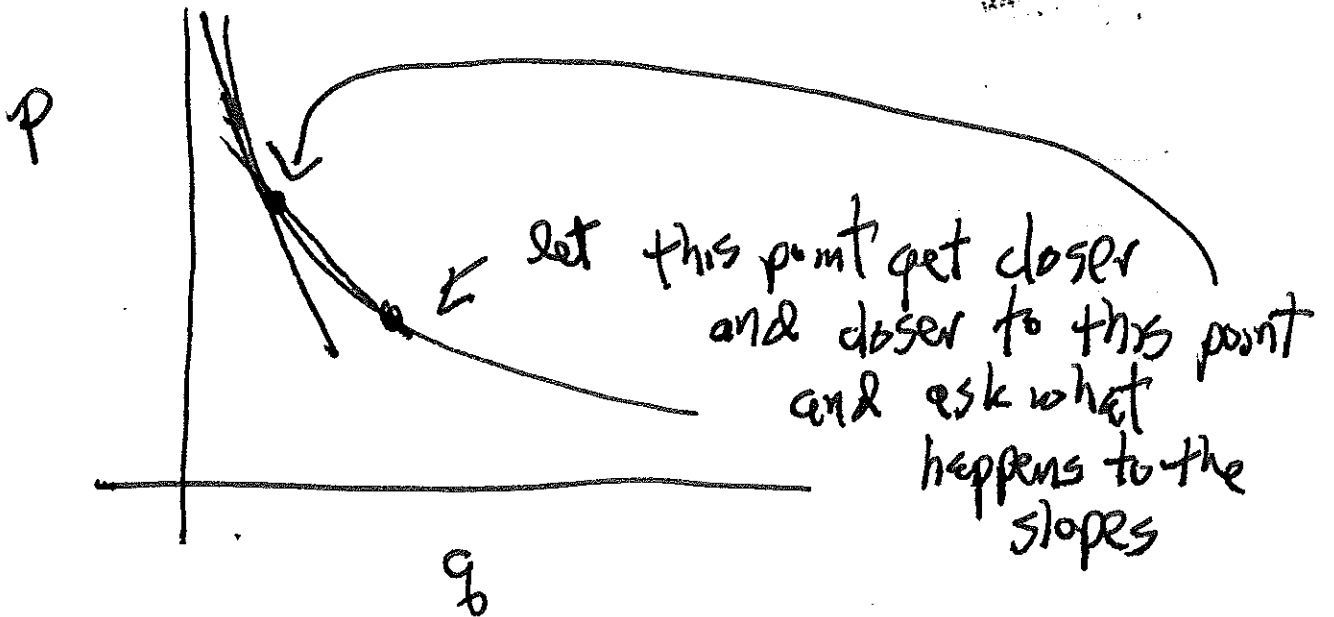 p
let this point get closer
and closer to this point
and ask what
happens to the
slopes
q